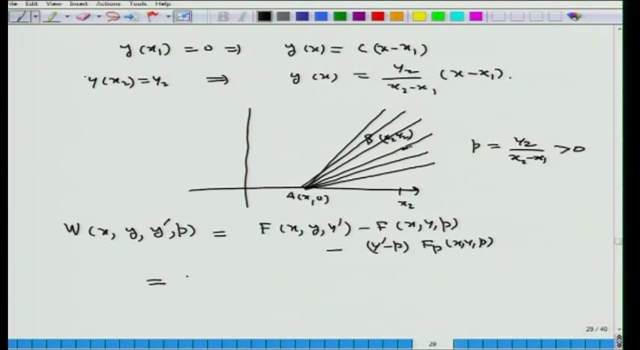 File Edit View Insert Actions Tools Help
y(x₁) = 0 ⇒ y(x) = C(x-x₁)
y(x₂) = y₂ ⇒ y(x) = y₂/(x₂-x₁) (x-x₁).
B(x₂,y₂)
p = y₂/(x₂-x₁) > 0
A(x₁,0)
x₂
W(x, y, y', p) = F(x, y, y') - F(x, y, p)
- (y'-p) Fp(x,y,p)
=
29 / 40
29